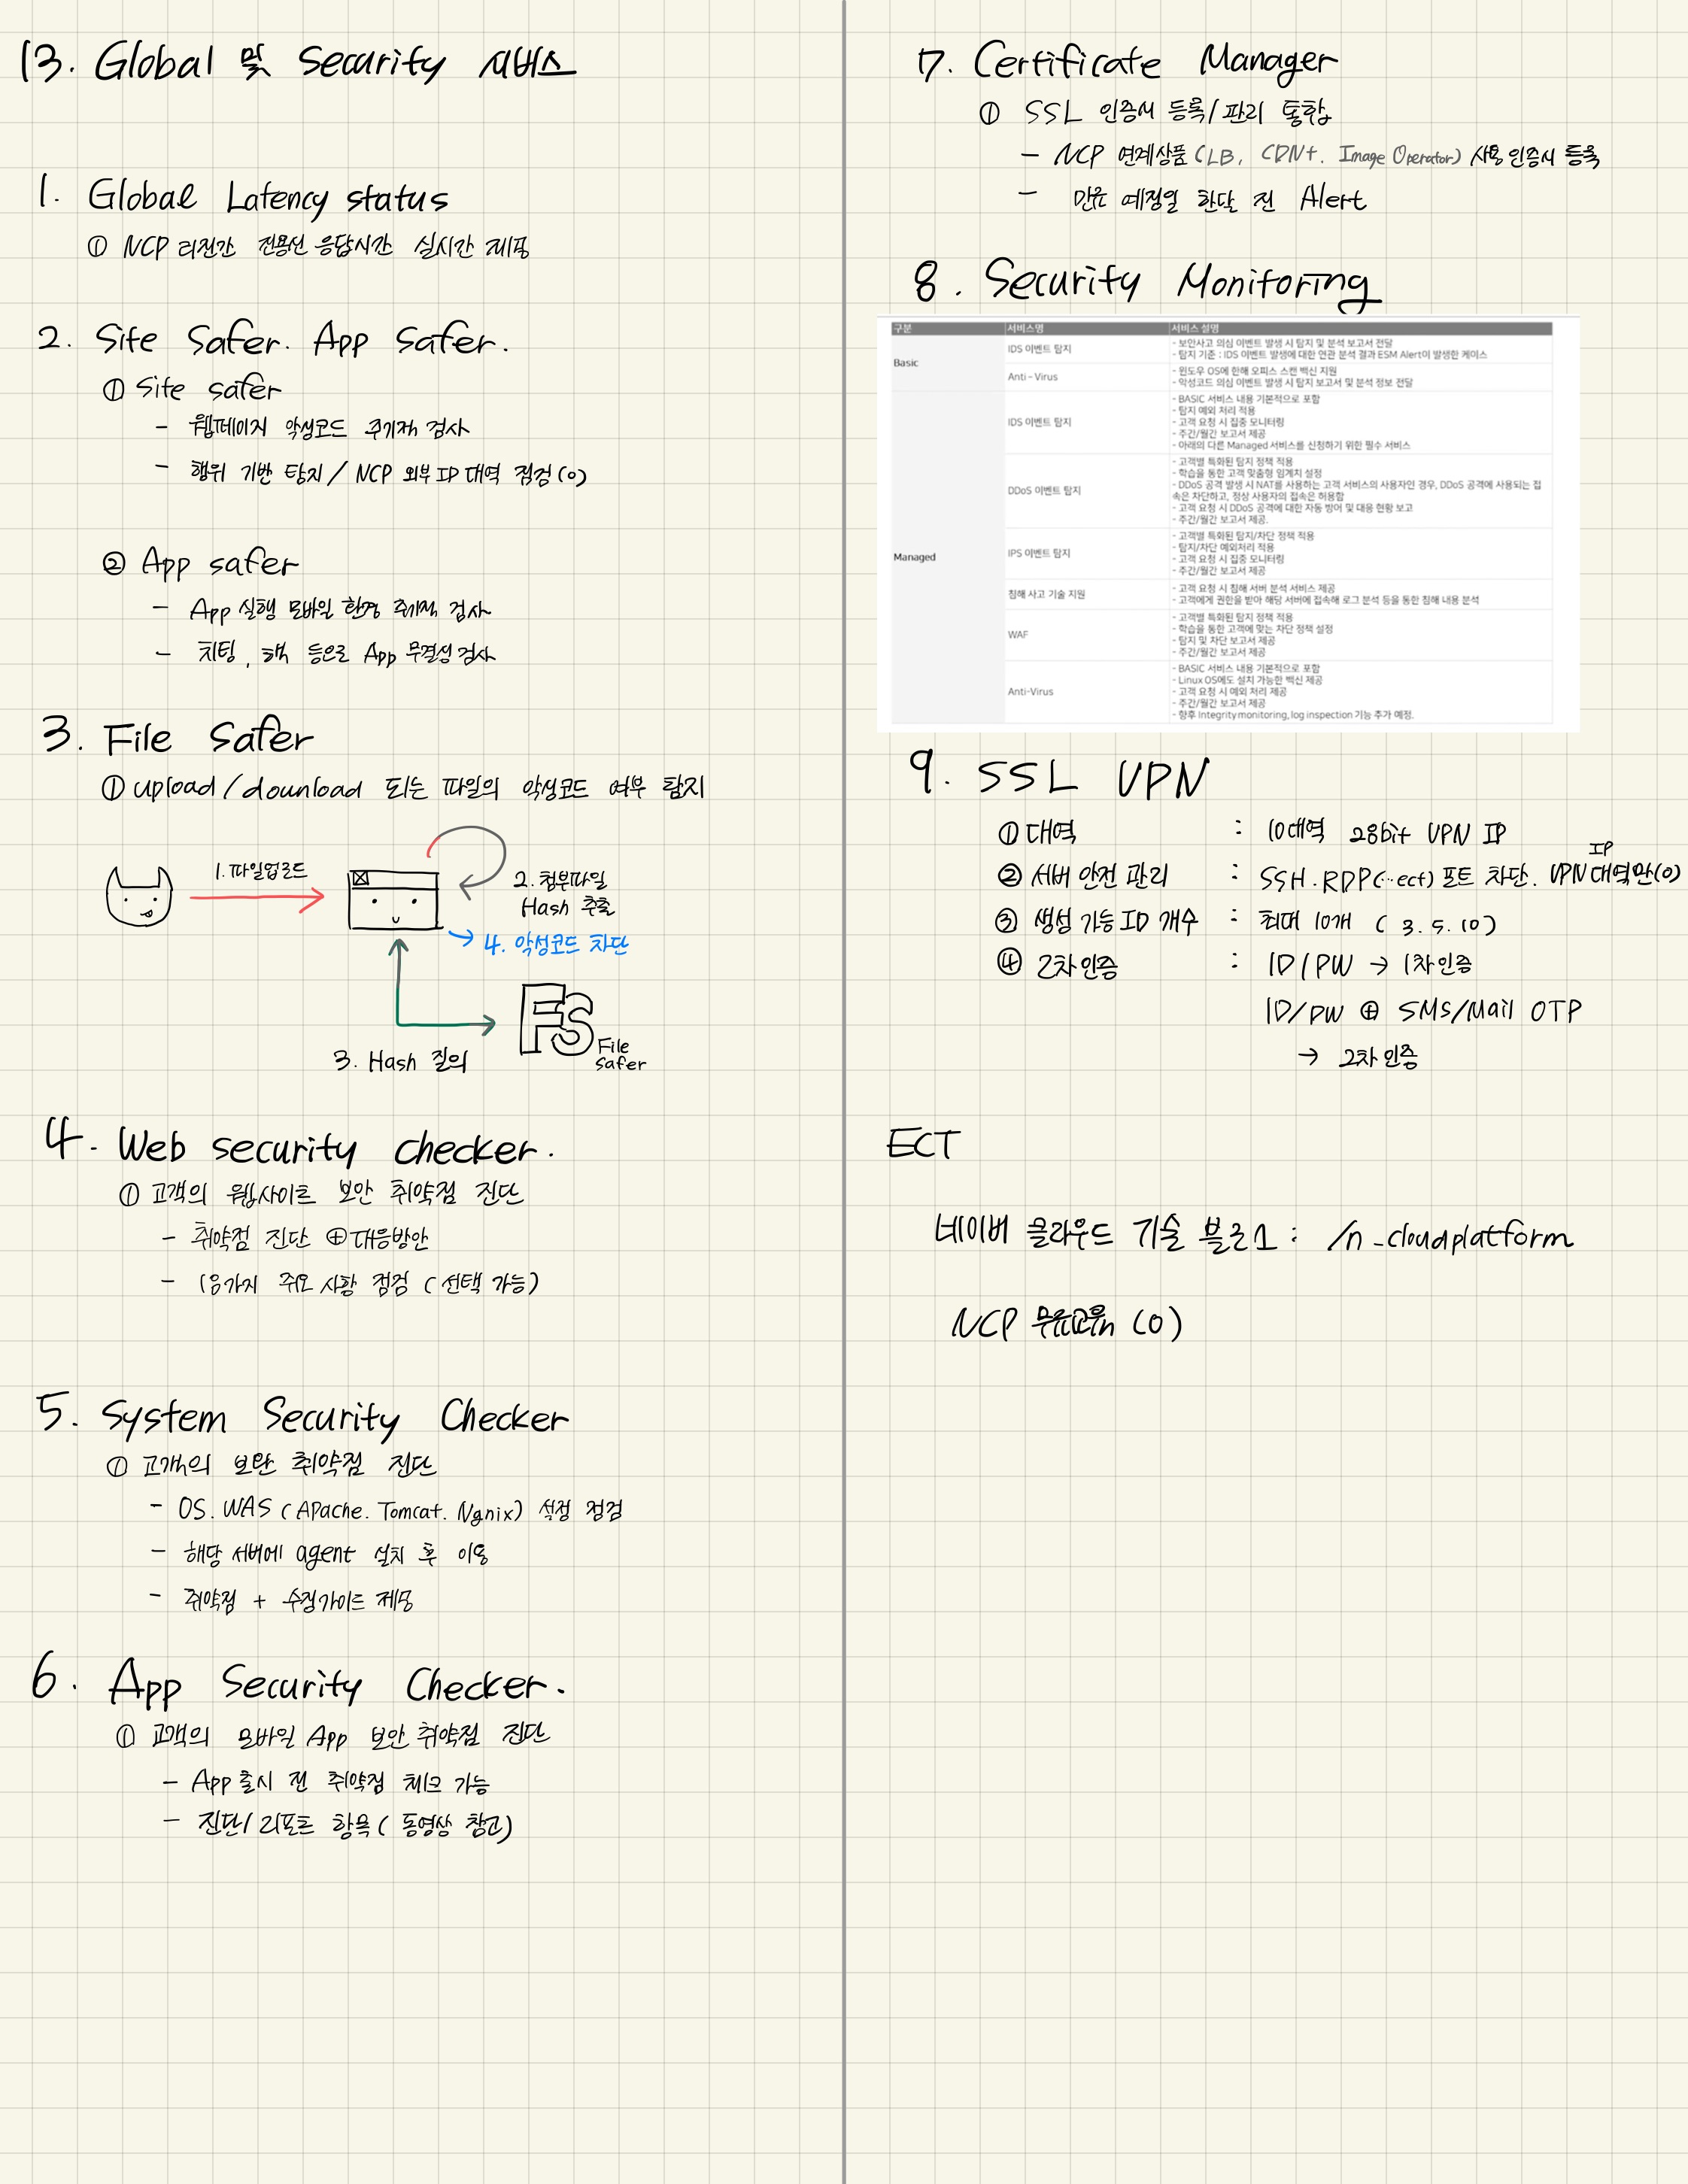 13. Global 및 Security 서비스
1. Global Latency status
① NCP 리전간 전용선 응답시간 실시간 제공
2. Site Safer. App Safer.
① Site safer
- 웹페이지 악성코드 주기적 검사
- 행위 기반 탐지 / NCP 외부 IP 대역 점검(o)
② App safer
- App 실행 모바일 환경 주기적 검사
- 치팅, 핵 등으로 App 무결성 검사
3. File Safer
① upload/download 되는 파일의 악성코드 여부 탐지
1. 파일업로드
2. 첨부파일
Hash 추출
4. 악성코드 차단
FS
File
Safer
3. Hash 질의
4. Web security checker.
① 고객의 웹사이트 보안 취약점 진단
- 취약점 진단 ⊕ 대응방안
- 18가지 주요 사항 점검 (선택 가능)
5. System Security Checker
① 고객의 보안 취약점 진단
- OS. WAS (APache. Tomcat. Ngnix) 설정 점검
- 해당 서버에 agent 설치 후 이용
- 취약점 + 수정가이드 제공
6. App Security Checker.
① 고객의 모바일 App 보안 취약점 진단
- App 출시 전 취약점 체크 가능
- 진단/리포트 항목 (동영상 참고)
7. Certificate Manager
① SSL 인증서 등록/관리 통합
- NCP 연계상품 (LB, CDN+. Image Operator) 사용 인증서 등록
- 만료 예정일 한달 전 Alert
8. Security Monitoring
구분 서비스명 서비스 설명
Basic
IDS 이벤트 탐지
- 보안사고 의심 이벤트 발생 시 탐지 및 분석 보고서 전달
- 탐지 기준 : IDS 이벤트 발생에 대한 연관 분석 결과 ESM Alert이 발생한 케이스
Anti – Virus
- 윈도우 OS에 한해 오피스 스캔 백신 지원
- 악성코드 의심 이벤트 발생 시 탐지 보고서 및 분석 정보 전달
Managed
IDS 이벤트 탐지
- BASIC 서비스 내용 기본적으로 포함
- 탐지 예외 처리 적용
- 고객 요청 시 집중 모니터링
- 주간/월간 보고서 제공
- 아래의 다른 Managed 서비스를 신청하기 위한 필수 서비스
DDoS 이벤트 탐지
- 고객별 특화된 탐지 정책 적용
- 학습을 통한 고객 맞춤형 임계치 설정
- DDoS 공격 발생 시 NAT를 사용하는 고객 서비스의 사용자인 경우, DDoS 공격에 사용되는 접
속은 차단하고, 정상 사용자의 접속은 허용함
- 고객 요청 시 DDoS 공격에 대한 자동 방어 및 대응 현황 보고
- 주간/월간 보고서 제공.
IPS 이벤트 탐지
- 고객별 특화된 탐지/차단 정책 적용
- 탐지/차단 예외처리 적용
- 고객 요청 시 집중 모니터링
- 주간/월간 보고서 제공
침해 사고 기술 지원
- 고객 요청 시 침해 서버 분석 서비스 제공
- 고객에게 권한을 받아 해당 서버에 접속해 로그 분석 등을 통한 침해 내용 분석
WAF
- 고객별 특화된 탐지 정책 적용
- 학습을 통한 고객에 맞는 차단 정책 설정
- 탐지 및 차단 보고서 제공
- 주간/월간 보고서 제공
Anti-Virus
- BASIC 서비스 내용 기본적으로 포함
- Linux OS에도 설치 가능한 백신 제공
- 고객 요청 시 예외 처리 제공
- 주간/월간 보고서 제공
- 향후 Integrity monitoring, log inspection 기능 추가 예정.
9. SSL VPN
① 대역 : 10대역 28bit VPN IP
② 서버 안전 관리 : SSH. RDP(...ect) 포트 차단. VPN IP 대역만(o)
③ 생성 가능 ID 개수 : 최대 10개 (3. 5. 10)
④ 2차인증 : ID/PW → 1차인증
ID/PW ⊕ SMS/Mail OTP
→ 2차인증
ECT
네이버 클라우드 기술 블로그 : /n_cloudplatform
NCP 무료교육 (o)